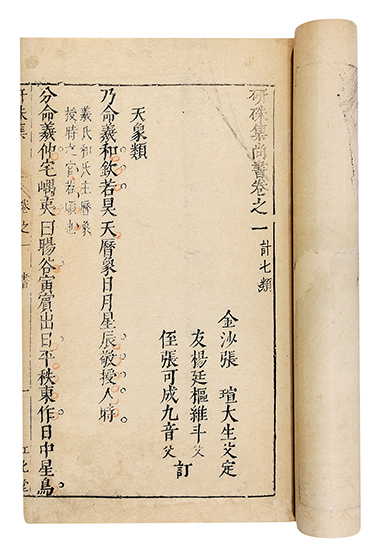 硏硃集尚書卷之一 計七類
金沙張 瑄大生父定
友楊廷樞維斗父
侄張可成九音父 訂
天象類
乃命羲和欽若昊天曆象日月星辰敬授人時
羲氏和氏主曆象
授時之官若順也
分命羲仲宅嵎夷曰暘谷寅賓出日平秩東作日中星鳥
硃集 卷之一 書